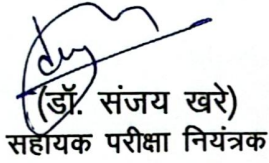 (डॉ. संजय खरे)
सहायक परीक्षा नियंत्रक